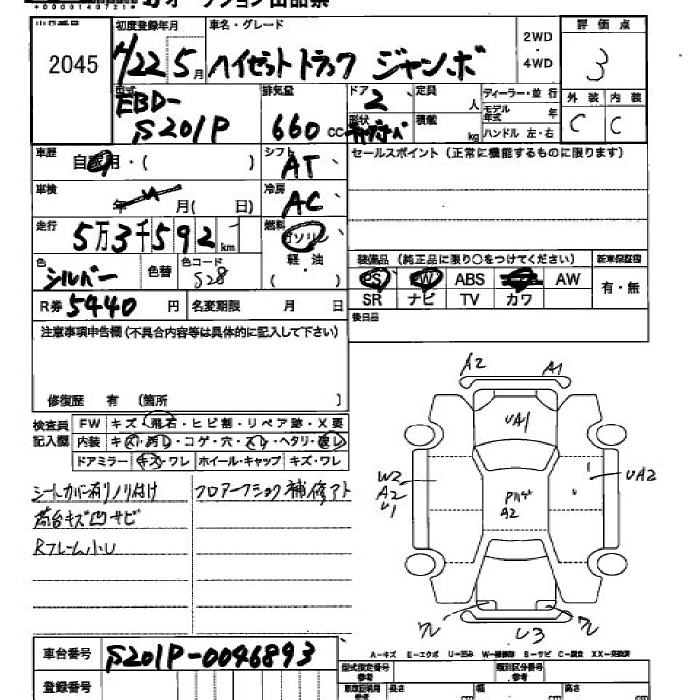 *00001407721*
オークション出品票
出品番号 初度登録年月 車名・グレード 2WD・4WD 評価点
2045 H22 5月 ハイゼットトラック ジャンボ 3
型式 EBD-S201P 排気量 660 CC ドア 2 定員 人 ディーラー・並行 外装 内装
形状 積載 kg モデル年式 年 ハンドル 左・右 C C
車歴 自家用・( ) シフト AT セールスポイント(正常に機能するものに限ります)
車検 年 月( 日) 冷房 AC
走行 5万3千592 km 燃料 ガソリン 軽・油
色 シルバー 色替 色コード S28 装備品(純正品に限り○をつけてください) 新車保証書
PS PW ABS AW 有・無
R券 5440 円 名変期限 月 日 SR ナビ TV カワ
注意事項申告欄(不具合内容等は具体的に記入して下さい) 後日品
修復歴 有(箇所 )
検査員記入欄 FW キズ・飛石・ヒビ割・リペア跡・X要
内装 キズ・汚レ・コゲ・穴・スレ・ヘタリ・
ドアミラー キズ・ワレ ホイール・キャップ キズ・ワレ
シートカバー有リノリ付け フロアーフック補修アト
荷台キズ凹サビ
Rフレーム小U
A2 A1
UA1
W2 A2 U1
A2
UA2
ワレ U3 ワレ
車台番号 S201P-0046893
A-キズ E-エクボ U-凹み W-補修跡 S-サビ C-腐食 XX-交換済
登録番号 型式指定番号 参考 類別区分番号 参考
車車証明用 参考 長さ 幅 高さ